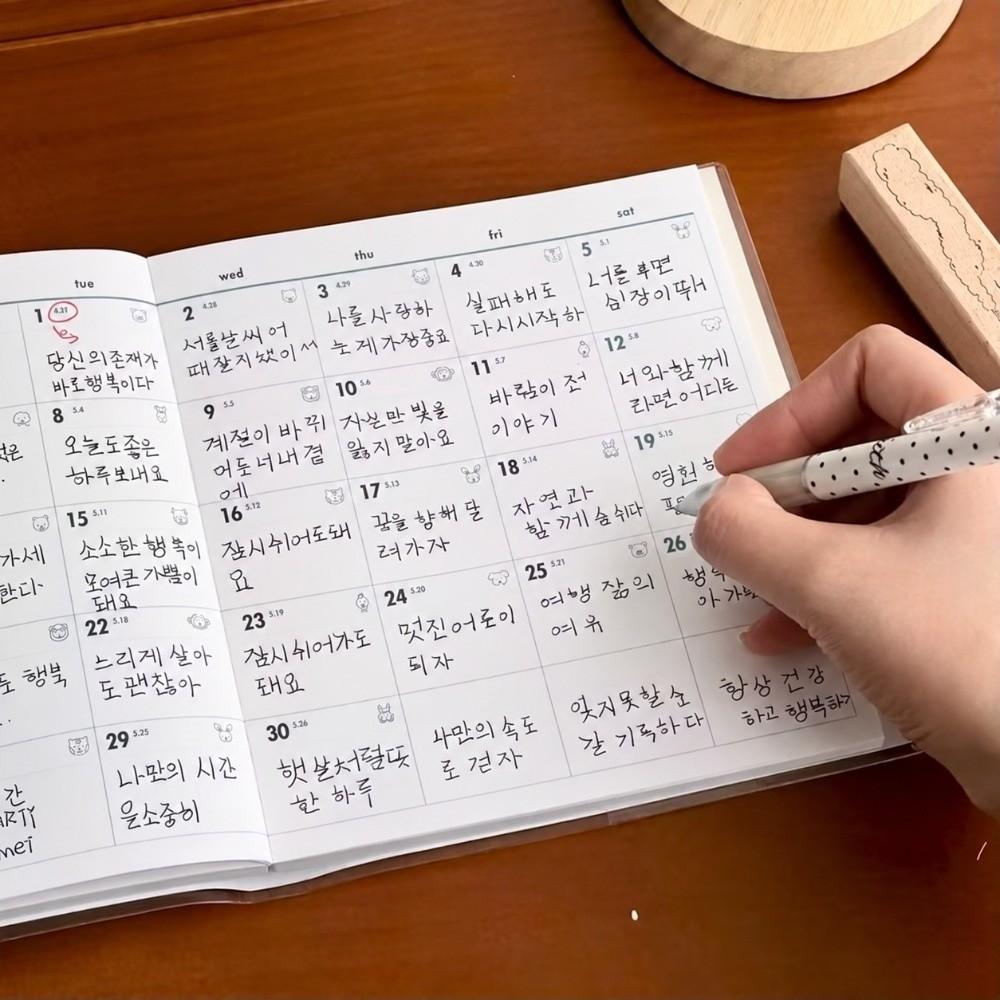 tue
wed
thu
fri
sat
1 4.27
당신의존재가
바로행복이다
2 4.28
서를날씨어
때잘지냈이서
3 4.29
나를사랑하
는게가장중요
4 4.30
실패해도
다시시작하
5 5.1
너를 후면
심장이뛰어
은
8 5.4
오늘도좋은
하루보내요
9 5.5
계절이 바뀌
어도너내곁
에
10 5.6
자신만빛을
잃지 말아요
11 5.7
바람이 전
이야기
12 5.8
너와함께
라면어디든
가세
한다
15 5.11
소소한행복이
모여큰기쁨이
돼요
16 5.12
잠시쉬어도돼
요
17 5.13
꿈을 향해 달
려가자
18 5.14
자연과
함께숨쉬다
19 5.15
영원
행복
22 5.18
느리게 살아
도괜찮아
23 5.19
잠시쉬어가도
돼요
24 5.20
멋진어른이
되자
25 5.21
여행 잠의
여유
26
행
아
간
ARTY
mei
29 5.25
나만의 시간
을소중히
30 5.26
햇살처럼따뜻
한 하루
나만의 속도
로 걷자
잊지못할순
갈 기록하다
항상 건강
하고 행복하